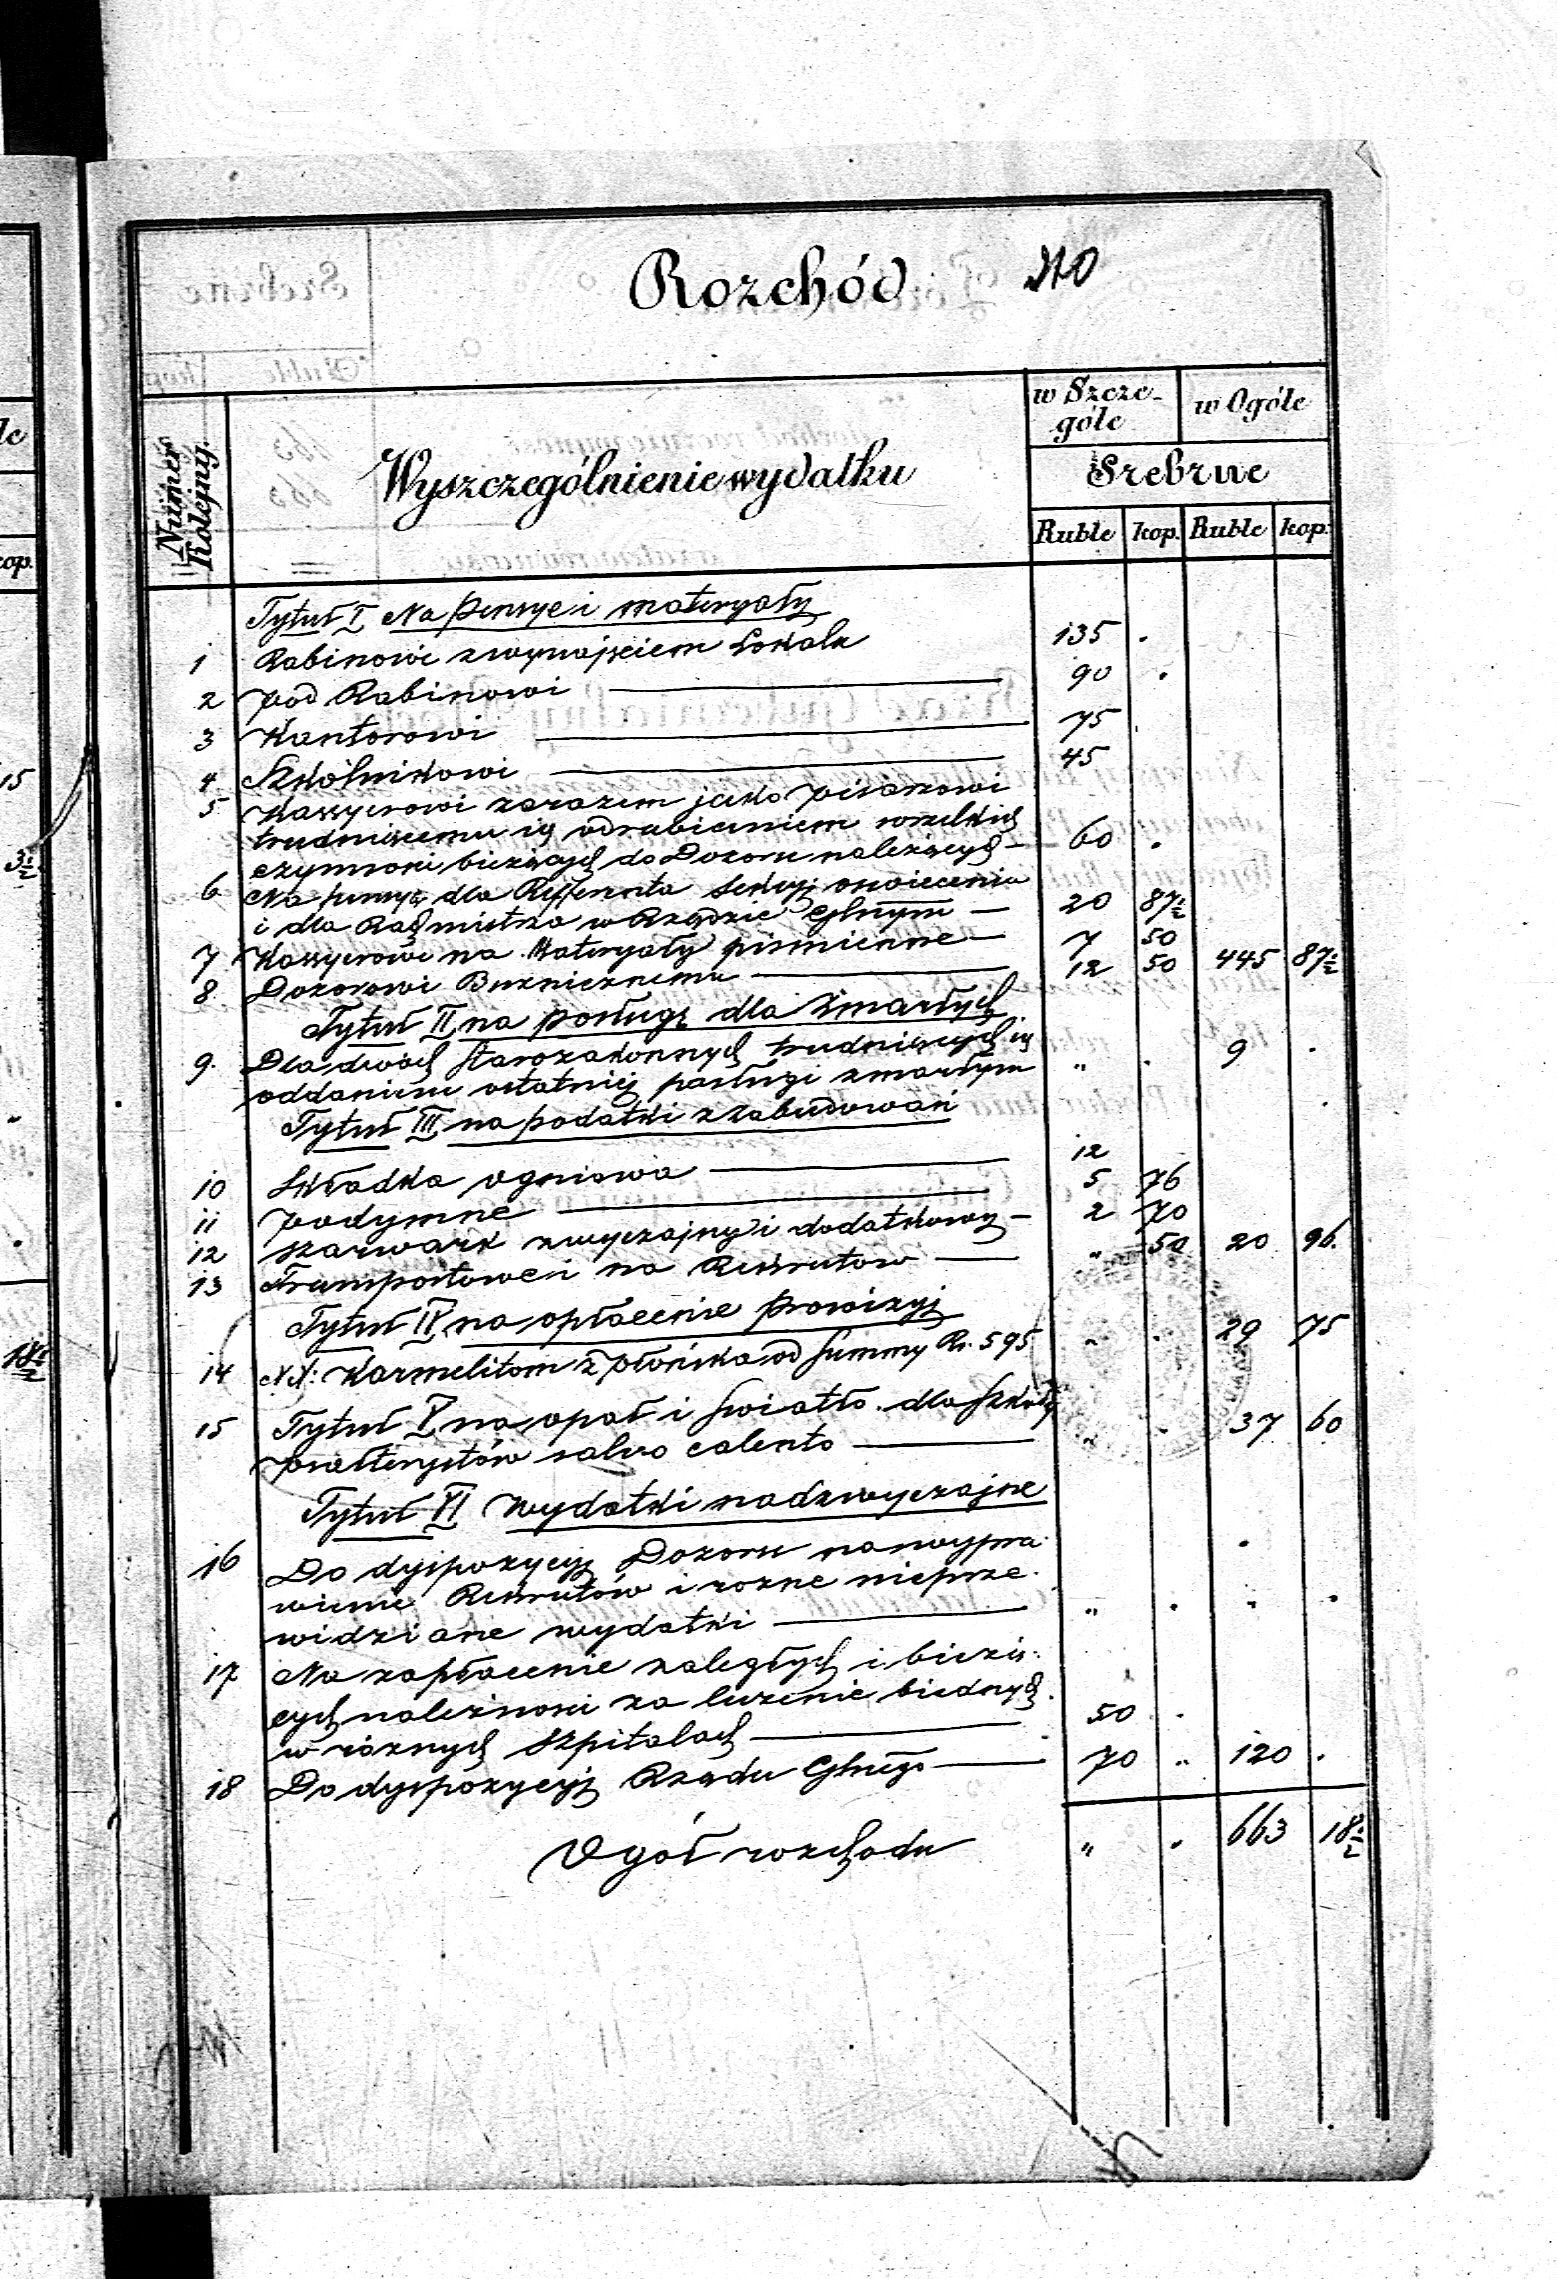 Rozchód
w Szcze-
góle
w Ogóle
Numer
Kolejny.
Wyszczególnienie wydatku
Srebrne
Ruble kop. Ruble kop.
Tytuł I Na pensye i materyały
1 Rabinowi z wynajęciem Lokalu 135 .
2 pod Rabinowi — 90 .
3 Kantorowi — 75 .
4 Szkólnikowi — 45
5 Kassyerowi zarazem jako pisarzowi
trudniącemu ię odrabianiem wszelkich
czynności bieżących do Dozoru należących — 60 .
6 Na pensyą dla Refferenta Sekcyi oswiecenia
i dla Rachmistrza w Rządzie Gblnym — 20 87½
7 Kassyerowi na Materyały piśmienne — 7 50
8 Dozorowi Bużnicznemu — 12 50 445 87½
Tytuł II na posługę dla Zmarłych
9. Dla dwóch Starozakonnych trudniących ię
oddaniem ostatniej posługi zmarłym „ . 9 .
Tytuł III na podatki z zabudowań
10 Składka ogniowa — 12
11 podymne — 5 76
12 szarwark zwyczajny i dodatkowy — 2 70
13 Transportowe i na Rekrutów — „ 50 20 96.
Tytuł IV na opłacenie prowizyi
14 XX: Karmelitom z Płońska od Summy Rs. 595 „ . 29 75
15 Tytuł V na opał i światło dla Szkoły
psałterystów salvo calculo — „ . 37 60
Tytuł VI Wydatki nadzwyczajne
16 Do dyspozycyi Dozoru na wypra-
wienie Rekrutów i rozne nieprze-
widziane wydatki — „ . . .
17 Na zapłacenie zaległych i bieżą-
cych należności za leczenie biednych
w różnych Szpitalach — 50 .
18 Do dyspozycyi Rządu Gblnego — 70 „ 120 .
Ogół rozchodu „ . 663 18½